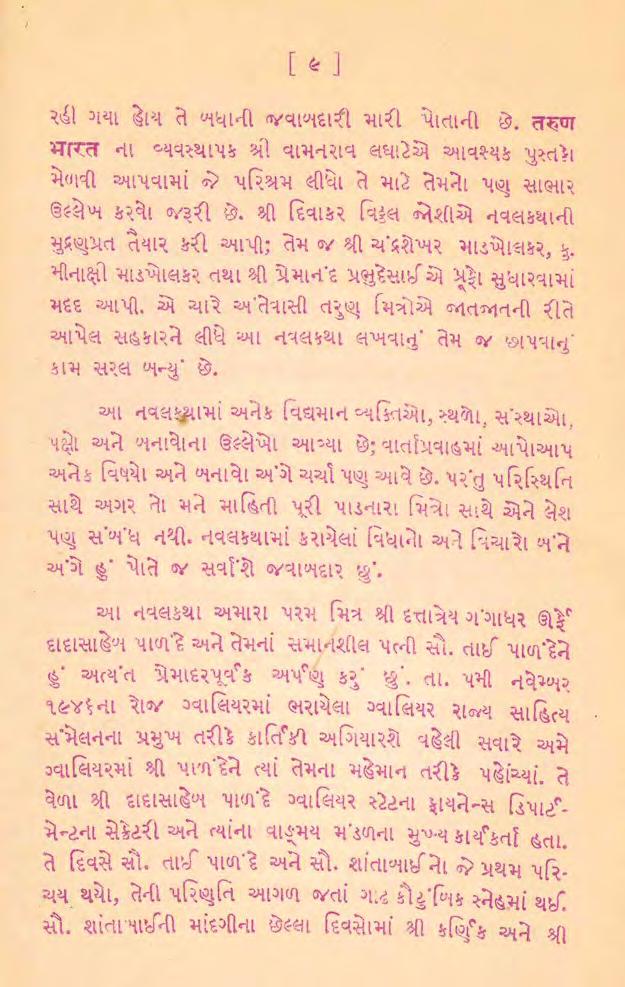 [ ૯ ]
રહી ગયા હોય તે બધાની જવાબદારી મારી પોતાની છે. तरुण
भारत ના વ્યવસ્થાપક શ્રી વામનરાવ લઘાટેએ આવશ્યક પુસ્તકો
મેળવી આપવામાં જે પરિશ્રમ લીધો તે માટે તેમનો પણ સાભાર
ઉલ્લેખ કરવો જરૂરી છે. શ્રી દિવાકર વિઠ્ઠલ જોશીએ નવલકથાની
મુદ્રણપ્રત તૈયાર કરી આપી; તેમ જ શ્રી ચંદ્રશેખર માડખોલકર, કુ.
મીનાક્ષી માડખોલકર તથા શ્રી પ્રેમાનંદ પ્રભુદેસાઈ એ પ્રૂફો સુધારવામાં
મદદ આપી. એ ચારે અંતેવાસી તરુણ મિત્રોએ જાતજાતની રીતે
આપેલ સહકારને લીધે આ નવલકથા લખવાનું તેમ જ છાપવાનું
કામ સરલ બન્યું છે.
આ નવલકથામાં અનેક વિદ્યમાન વ્યક્તિઓ, સ્થળો, સંસ્થાઓ,
પક્ષો અને બનાવોના ઉલ્લેખો આવ્યા છે; વાર્તાપ્રવાહમાં આપોઆપ
અનેક વિષયો અને બનાવો અંગે ચર્ચા પણ આવે છે. પરંતુ પરિસ્થિતિ
સાથે અગર તો મને માહિતી પૂરી પાડનારા મિત્રો સાથે એને લેશ
પણ સંબંધ નથી. નવલકથામાં કરાયેલાં વિધાનો અને વિચારો બંને
અંગે હું પોતે જ સર્વાંશે જવાબદાર છું.
આ નવલકથા અમારા પરમ મિત્ર શ્રી દત્તાત્રેય ગંગાધર ઊર્ફે
દાદાસાહેબ પાળંદે અને તેમનાં સમાનશીલ પત્ની સૌ. તાઈ પાળંદેને
હું અત્યંત પ્રેમાદરપૂર્વક અર્પણ કરું છું. તા. ૫મી નવેમ્બર
૧૯૪૬ના રોજ ગ્વાલિયરમાં ભરાયેલા ગ્વાલિયર રાજ્ય સાહિત્ય
સંમેલનના પ્રમુખ તરીકે કાર્તિકી અગિયારશે વહેલી સવારે અમે
ગ્વાલિયરમાં શ્રી પાળંદેને ત્યાં તેમના મહેમાન તરીકે પહોંચ્યાં. તે
વેળા શ્રી દાદાસાહેબ પાળંદે ગ્વાલિયર સ્ટેટના ફાયનેન્સ ડિપાર્ટ-
મેન્ટના સેક્રેટરી અને ત્યાંના વાઙ્મય મંડળના મુખ્ય કાર્યકર્તા હતા.
તે દિવસે સૌ. તાઈ પાળંદે અને સૌ. શાંતાબાઈનો જે પ્રથમ પરિ-
ચય થયો, તેની પરિણતિ આગળ જતાં ગાઢ કૌટુંબિક સ્નેહમાં થઈ.
સૌ. શાંતાબાઈની માંદગીના છેલ્લા દિવસોમાં શ્રી કર્ણિક અને શ્રી